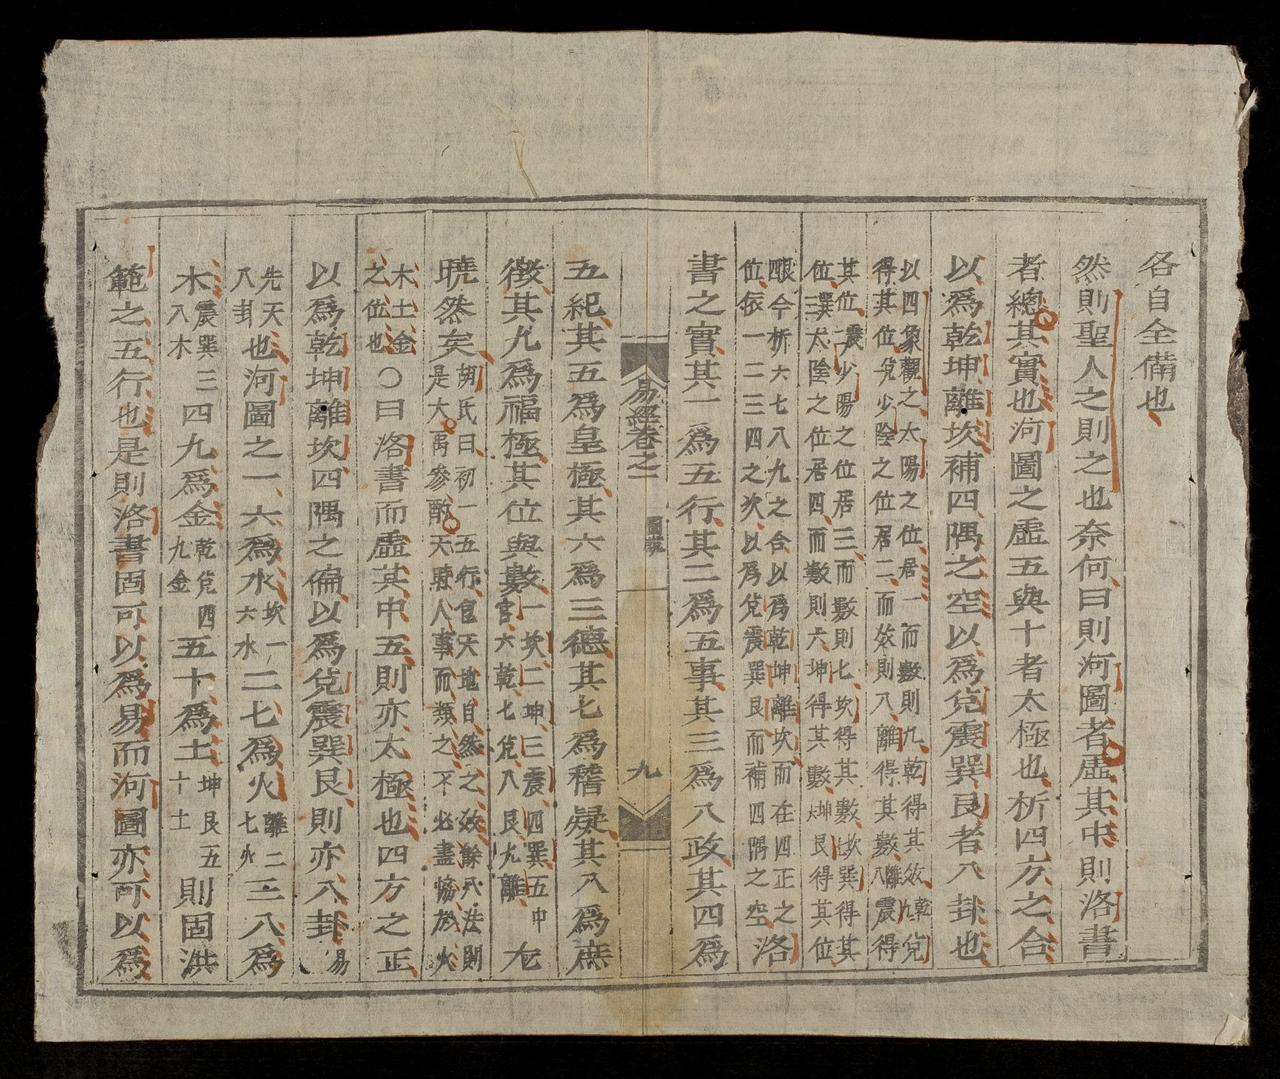 各自全備也
然則聖人之則之也奈何曰則河圖者虛其中則洛書
者總其實也河圖之虛五與十者太極也析四方之合
以爲乾坤離坎補四隅之空以爲兌震巽艮者八卦也
以四象觀之太陽之位居一而數則九乾得其效九乾兌
得其位兌少陰之位居二而效則八離得其數八離震得
其位震二少陽之位居三而數則七坎得其數七坎巽得其
位巽太陰之位居四而數則六坤得其數坤艮得其位
今析六七八九之合以爲乾坤離坎而在四正之
位依一二三四之次以爲兌震巽艮而補四隅之空
洛
書之實其一爲五行其二爲五事其三爲八政其四爲
易經卷之一 圖說 九
五紀其五爲皇極其六爲三德其七爲稽疑其八爲庶
徵其九爲福極其位與數
一坎二坤三震四巽五中
宮六乾七兌八艮九離
尤
曉然矣
胡氏曰初一五行官天地自然之效餘八法則
是大禹參酌天時人事而類之不必盡協於火
木土金
之位也
〇曰洛書而虛其中五則亦太極也四方之正
以爲乾坤離坎四隅之偏以爲兌震巽艮則亦八卦
易
先天
八卦
也河圖之一六爲水
坎一
六水
二七爲火
離二
七火
三八爲
木
震巽三
八木
四九爲金
乾兌四
九金
五十爲土
坤艮五
十土
則固洪
範之五行也是則洛書固可以爲易而河圖亦可以爲